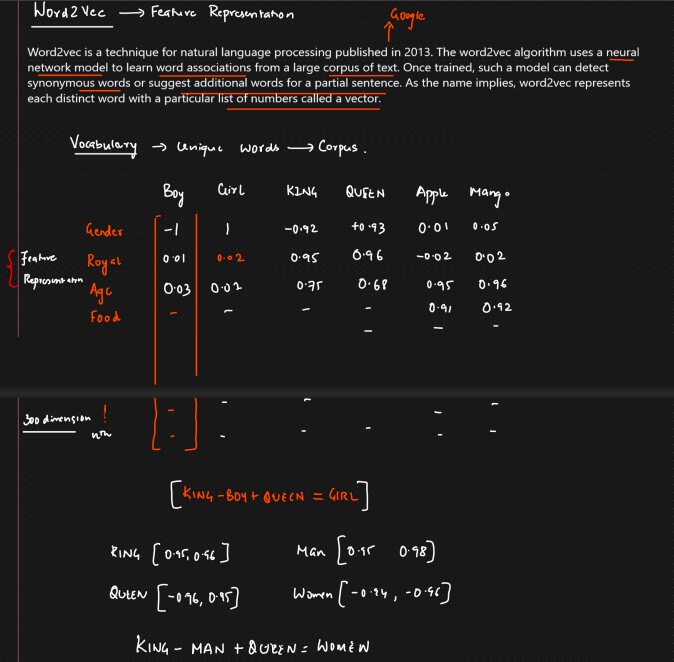 Word2Vec → Feature Representation
Google
Word2vec is a technique for natural language processing published in 2013. The word2vec algorithm uses a neural
network model to learn word associations from a large corpus of text. Once trained, such a model can detect
synonymous words or suggest additional words for a partial sentence. As the name implies, word2vec represents
each distinct word with a particular list of numbers called a vector.
Vocabulary → unique words → Corpus.
Boy Girl KING QUEEN Apple Mango
Gender -1 1 -0.92 +0.93 0.01 0.05
Feature Royal 0.01 0.02 0.95 0.96 -0.02 0.02
Representation Age 0.03 0.02 0.75 0.68 0.95 0.96
Food - - - - 0.91 0.92
- - -
! - - - - -
300 dimension
nth - - - - - -
[KING - BOY + QUEEN = GIRL]
KING [0.95, 0.96] Man [0.95 0.98]
QUEEN [-0.96, 0.95] Women [-0.94, -0.96]
KING - MAN + QUEEN = WOMEN